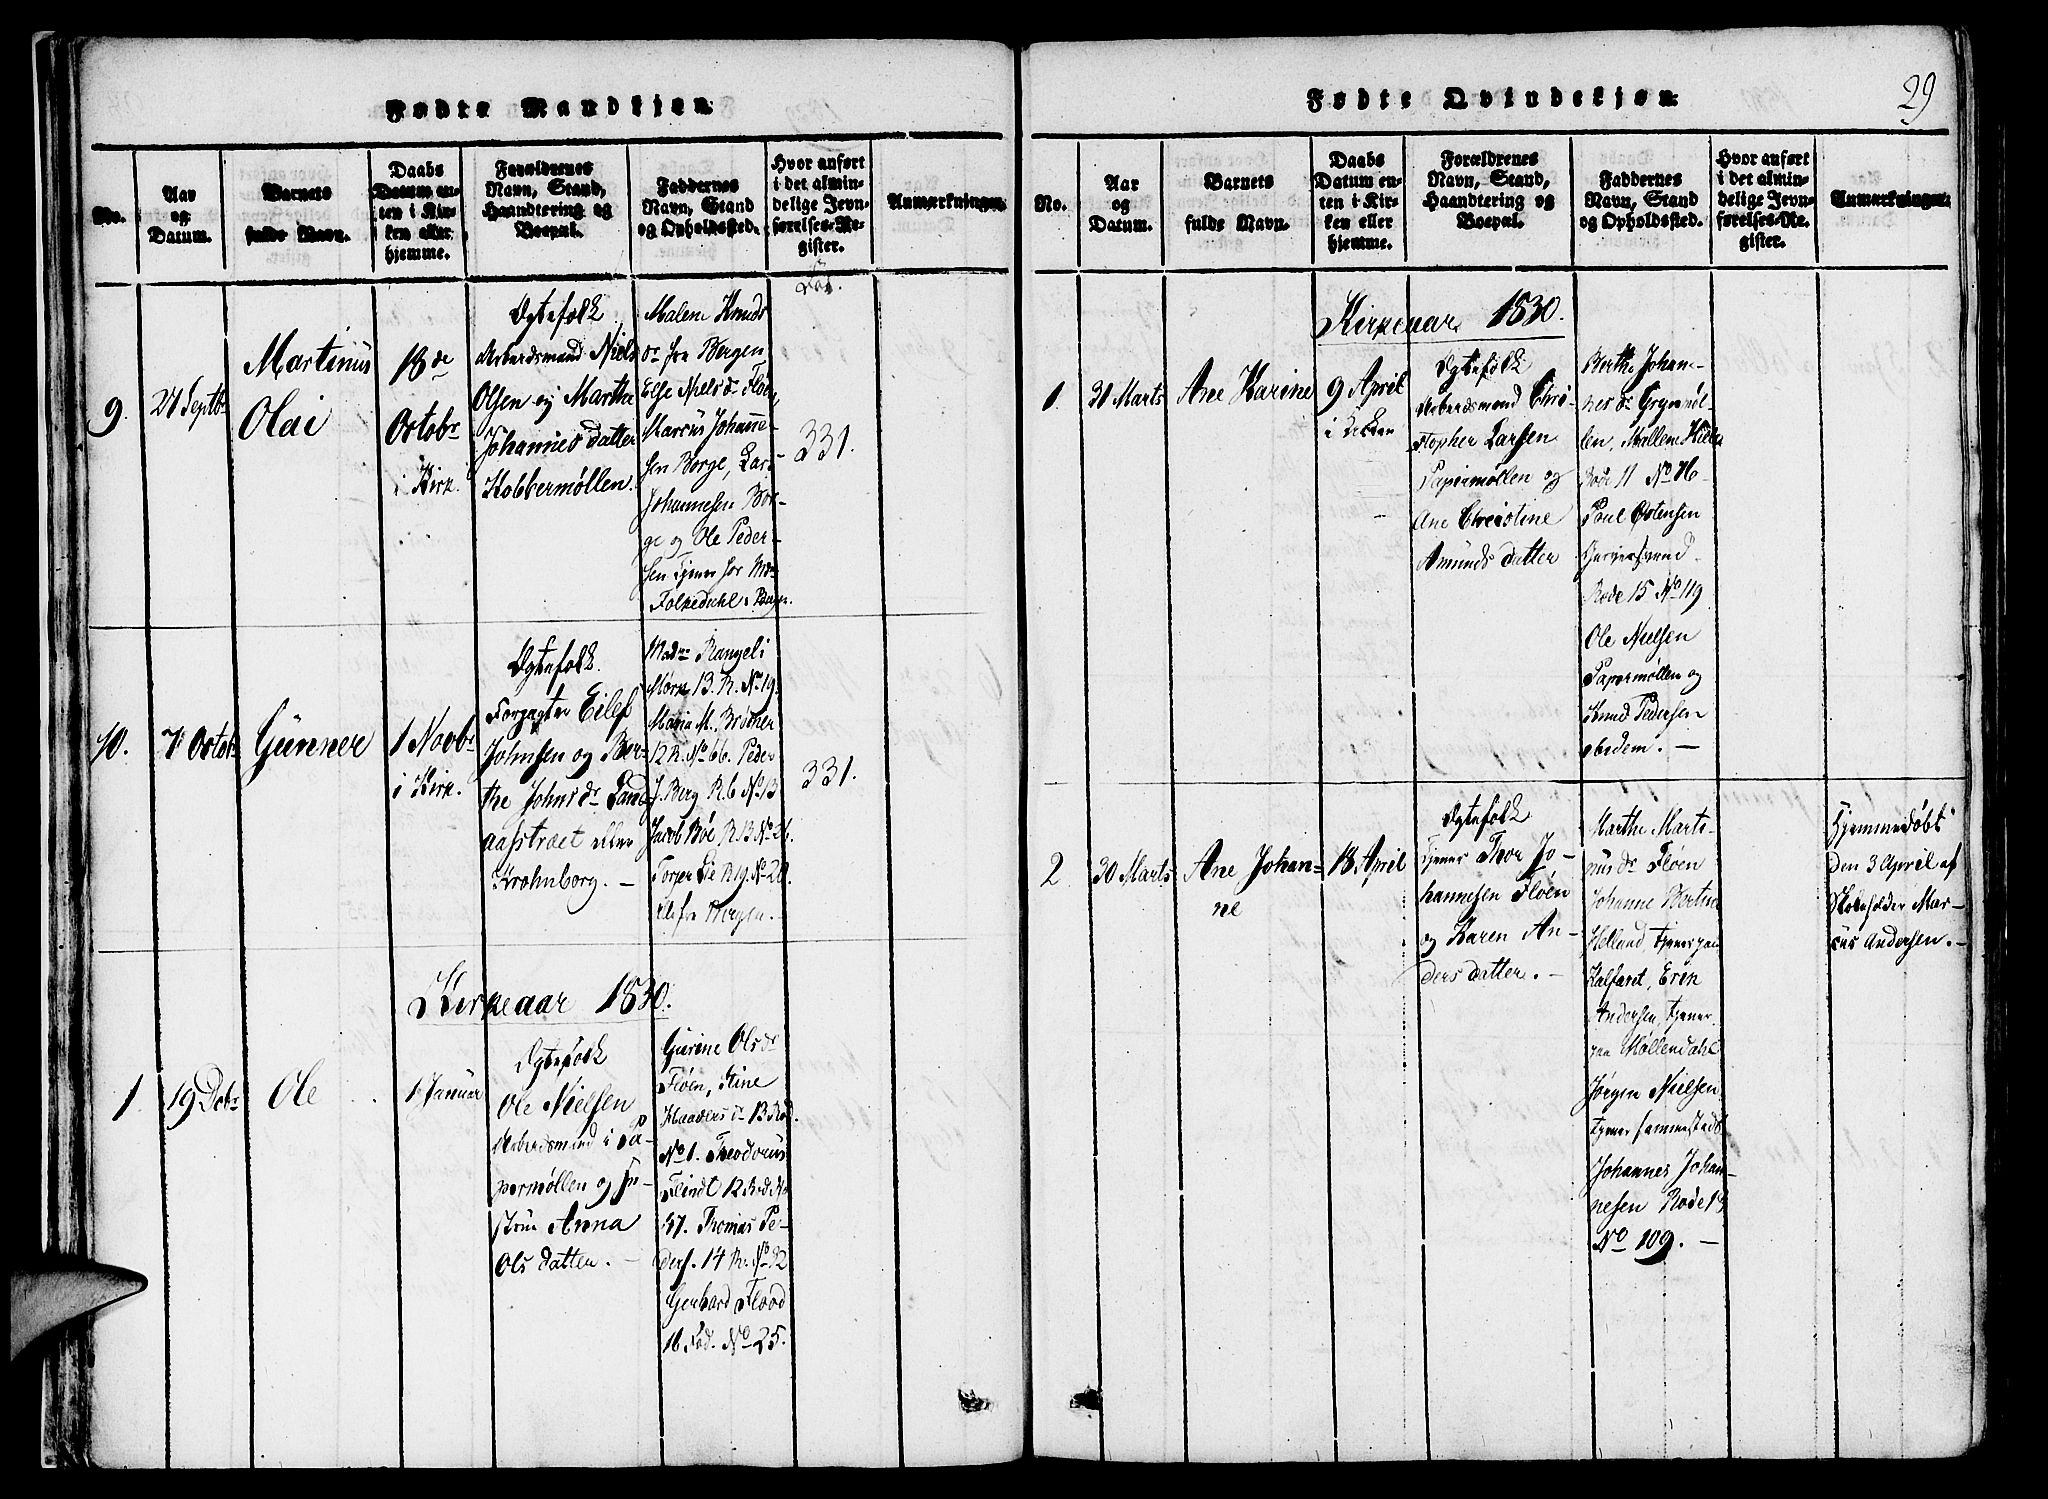 Fødte Mandkjøn.
No.
Aar
og
Datum.
Barnets
fulde Navn.
Daabs
Datum en-
ten i Kir-
ken eller
hjemme.
Forældrenes
Navn, Stand,
Haandtering og
Boepæl.
Faddernes
Navn, Stand
og Opholdssted.
Hvor anført
i det almin-
delige Jevn-
førelses-Re-
gister.
Anmærkninger.
9.
27 Septbr
Martinus
Olai
18de
Octobr
i Kirk.
Egtefolk
Arbeidsmand Niels
Olsen og Martha
Johannes datter
Kobbermøllen.
Malene Knuds
dr fra Bergen,
Else Niels dr Fløen,
Marcus Johanne-
sen Borge, Lars
Johannesen Bor-
ge og Ole Peder-
sen tjener for
Folkedahl i Bergen.
Fol.
331.
10.
7 Octobr
Gunner
1 Novbr
i Kirk.
Egtefolk.
Forpagter Eilef
Johnsen og Ber-
the Johns dr Land-
aasstræet eller
Krohnborg. —
Madme Rangeli
Mørk 13. R. No 19.
Maria M. Brocher
12 R. No 66. Peder
J. Berg R. 6 No 13
Jacob Bøe R 13 No 26.
R 19. No 28.
alle fra Bergen.
331.
Kirkeaar 1830.
1
19 Decbr
Ole
1 Januar
Egtefolk
Ole Nielsen
Arbeidsmand i Pa-
permøllen og Hu-
strue Anna
Ols datter. —
Gurine Ols dr
Fløen, Stine
Haagers dr 13 Rod.
No 1. Theodorus
Flindt 12 Rod No
37. Thomas Pe-
ders. 14 R. No 92
Gerhard Flood
16 Rod. No 25.
29
Fødte Qvindekjøn.
No.
Aar
og
Datum.
Barnets
fulde Navn.
Daabs
Datum en-
ten i Kir-
ken eller
hjemme.
Forældrenes
Navn, Stand,
Haandtering og
Boepæl.
Faddernes
Navn, Stand
og Opholdssted.
Hvor anført
i det almin-
delige Jevn-
førelses-Re-
gister.
Anmærkninger.
Kirkeaar 1830.
1.
31 Marts
Ane Karine
9 April
i Kirken
Egtefolk
Arbeidsmand Chri-
stopher Larsen
Papermøllen og
Ane Christine
Amunds datter
Berthe Johan-
nes dr
len, Mallene
Rode 11 No 76
Poul Østensen
Rode 15 No 119
Ole Nielsen
Papermøllen og
Knud Pedersen
ibidem. —
2
30 Marts
Ane Johan-
ne
18 April
Egtefolk
tjener Thor Jo-
hannesen Fløen
og Karen An-
ders datter. —
Marthe Marti-
nus dr Fløen
Johanne Bertine
Helland tjener paa
Kalfaret, Erik
Andersen, tjener
paa Møllendahl
Jørgen Nielsen
tjener sammesteds
Johannes Johan-
nesen Rode 19
No 109. —
Hjemmedøbt
den 3 April af
Skoleholder Mar-
cus Andersen. —